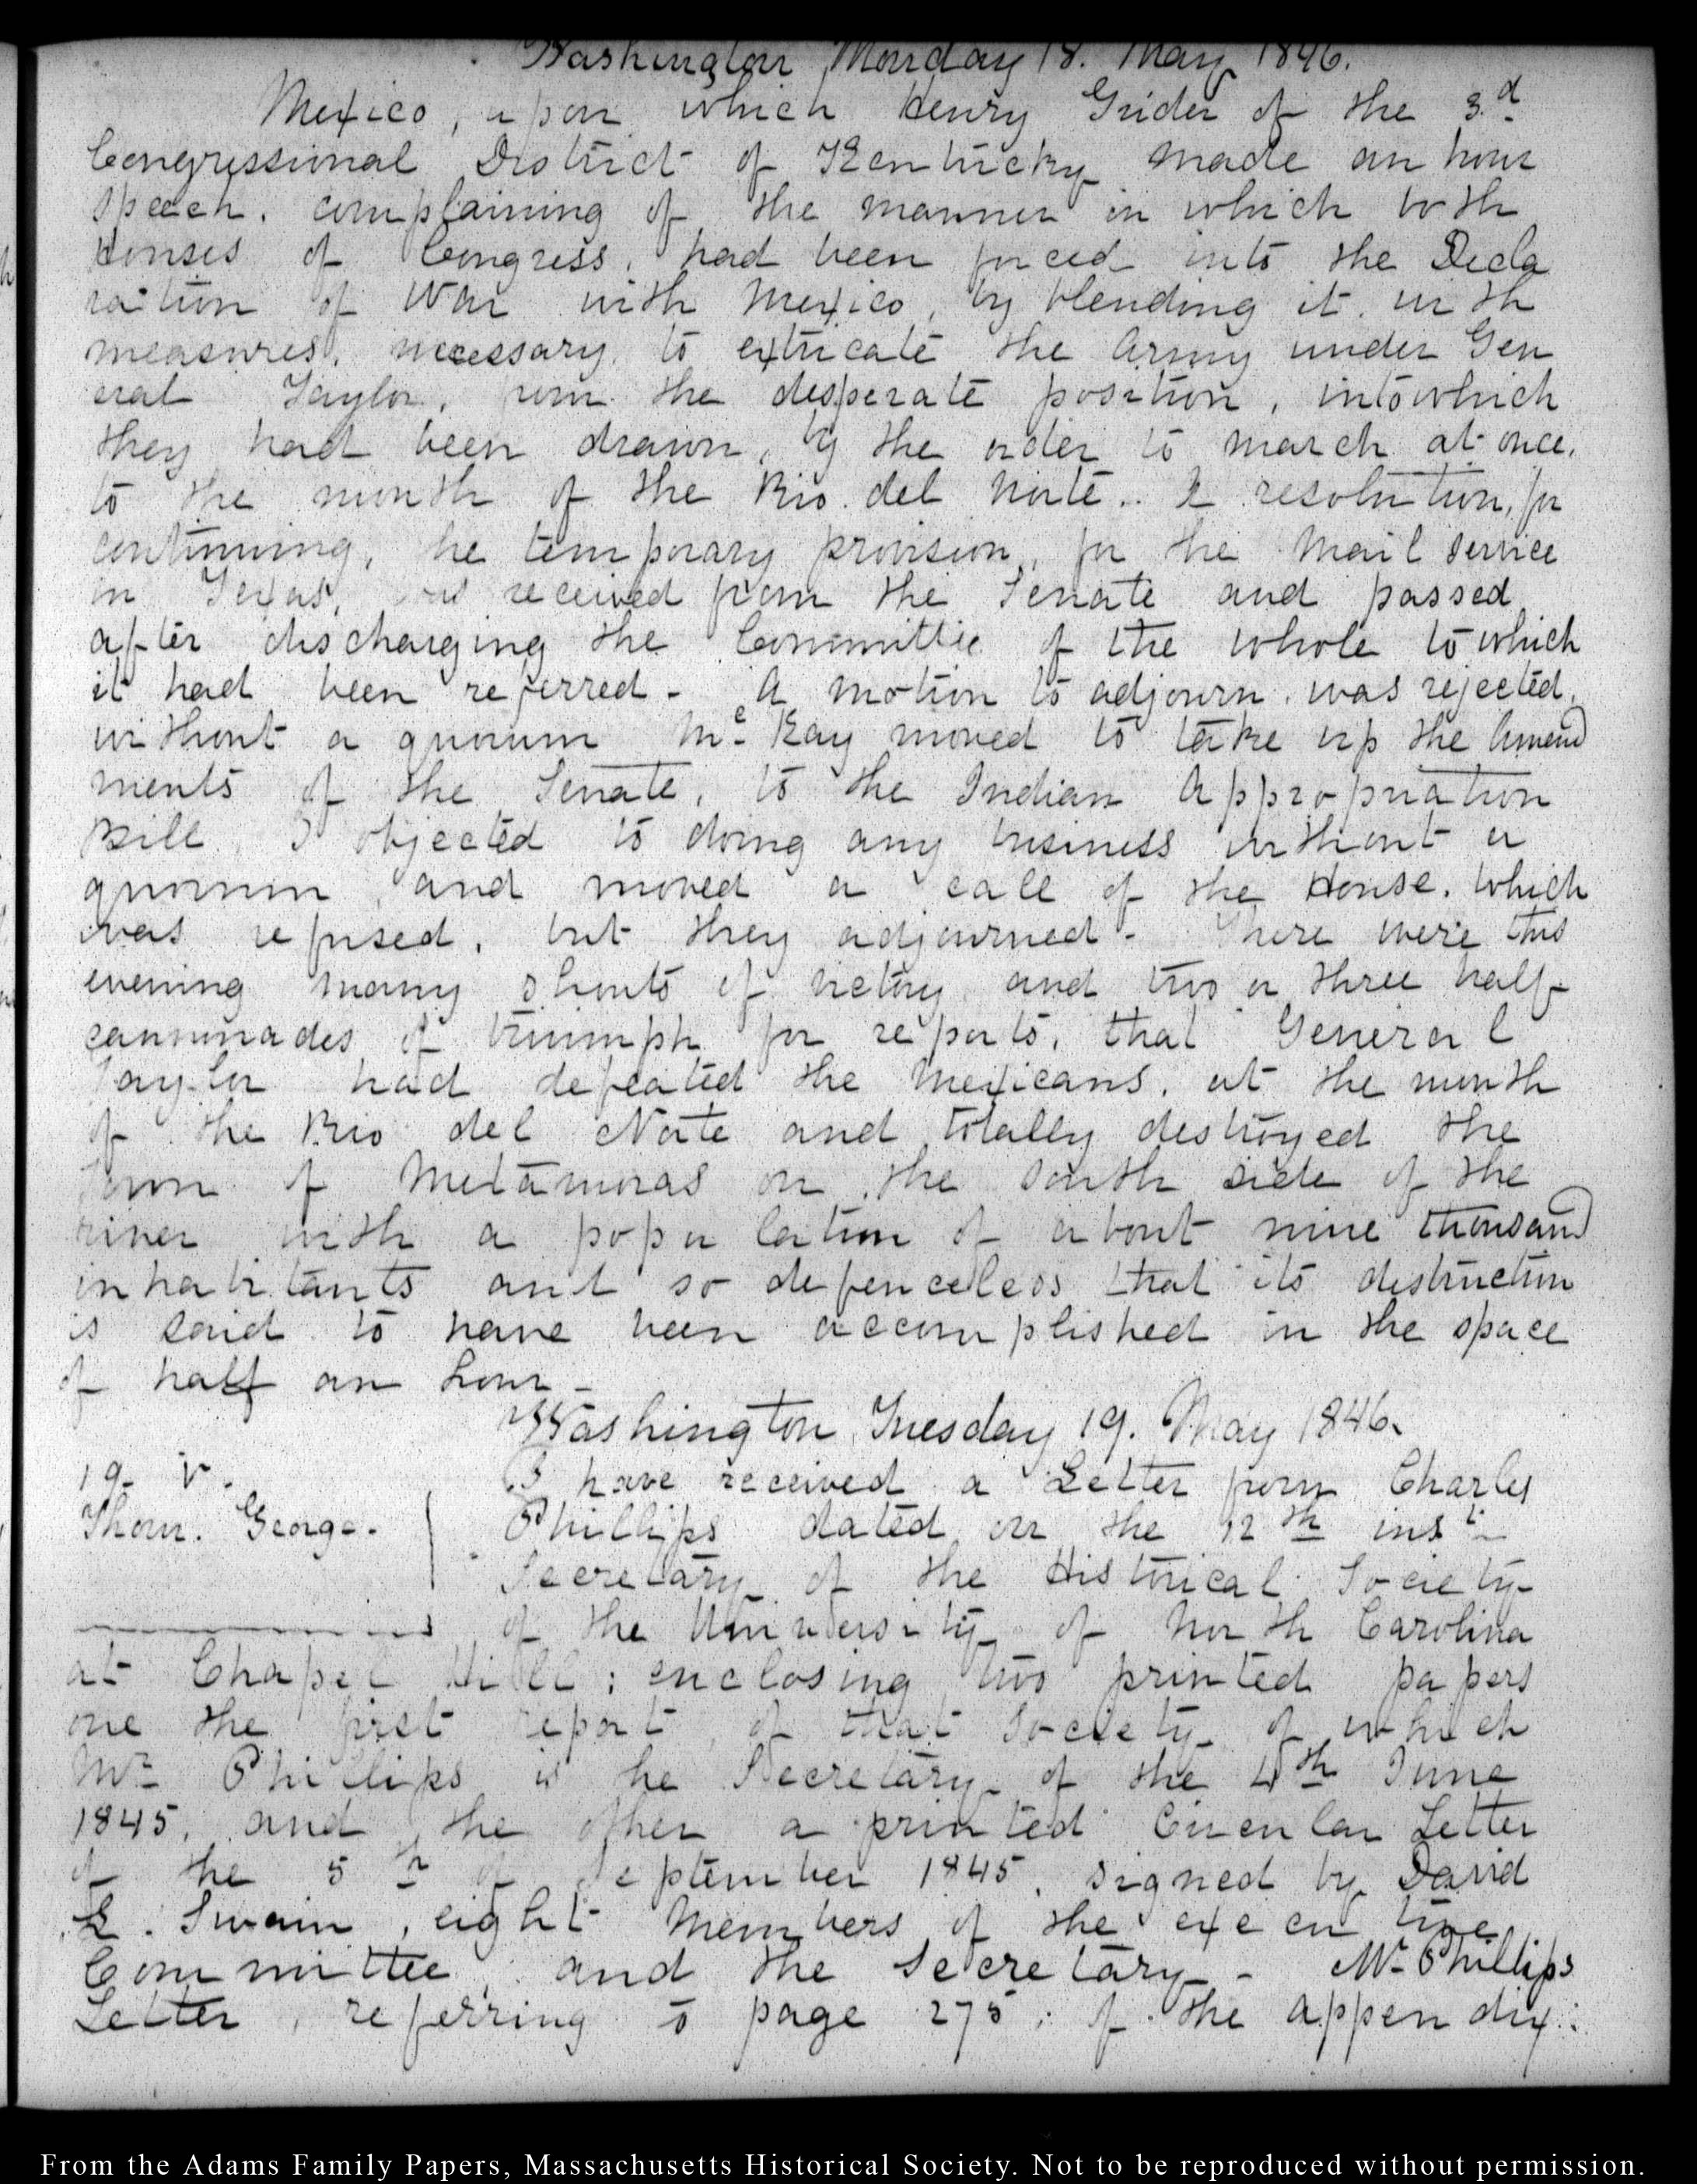 Washington Monday 18. May 1846.
Mexico, upon which Henry Grider of the 3.d
Congressional District of Kentucky made an hour
speech, complaining of the manner in which both
Houses of Congress, had been forced into the Decla
ration of War with Mexico, by blending it with
measures, necessary to extricate the Army under Gen
eral Taylor, from the desperate position, into which
they had been drawn, by the order to march at once,
to the mouth of the Rio del Norte.. A resolution, for
continuing, the temporary provision, for the Mail service
in Texas, was received from the Senate and passed
after discharging the Committee of the whole to which
it had been referred - A motion to adjourn was rejected,
without a quorum Mc Kay moved to take up the Amend
ments of the Senate, to the Indian Appropriation
Bill. I objected to doing any business without a
quorum and moved a call of the House, which
was refused, but they adjourned - There were this
evening many shouts of victory and two or three half
cannonades of triumph for reports, that General
Taylor had defeated the Mexicans, at the mouth
of the Rio del Norte and totally destroyed the
Town of Metamoras on the South side of the
river with a population of about nine thousand
inhabitants and so defenceless that its destruction
is said to have been accomplished in the space
of half an hour -
Washington Tuesday 19. May 1846.
19. V.
Thom. George.
I have received a Letter from Charles
Phillips dated on the 12th inst
Secretary of the Historical Society
of the University of North Carolina
at Chapel Hill; enclosing two printed papers
one the first report of that Society of which
Mr Phillips is the Secretary of the 4th June
1845, and the other a printed Circular Letter
of the 5th of September 1845, signed by David
L. Swain, eight Members of the executive
Committee, and the Secretary - Mr Phillips
Letter, referring to page 275, of the appendix:
From the Adams Family Papers, Massachusetts Historical Society. Not to be reproduced without permission.